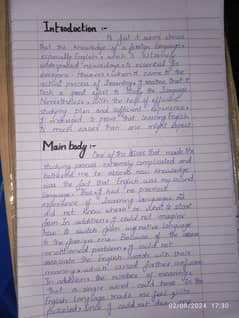 Introduction :-
At first it seems obvious
that the knowledge of a foreign language,
especially English, which is extremely
widespread nowadays, is essential for
everyone. However, when it came to the
actual process of learning, I realized that it
took a great effort to study the language.
Nevertheless, with the help of efficient
studying plan and sufficient experience,
I intended to prove that learning English
is much easier than one might expect.
Main body :-
One of the issues that made the
studying process extremely complicated and
bothered me to absorb new knowledge
was the fact that English was my second
language. Thus, I had no practical
experience of learning languages and
did not know where or what to start
from. In addition, I could not imagine
how to switch from my native language
to the foreign one. Because of the above
mentioned problems, I could not
associate the English words with their
meanings, which caused further confusion.
In addition, the number of meanings
that a single word could have in the
English language made me feel quite
frustrated, since I could not
02/08/2024 17:30